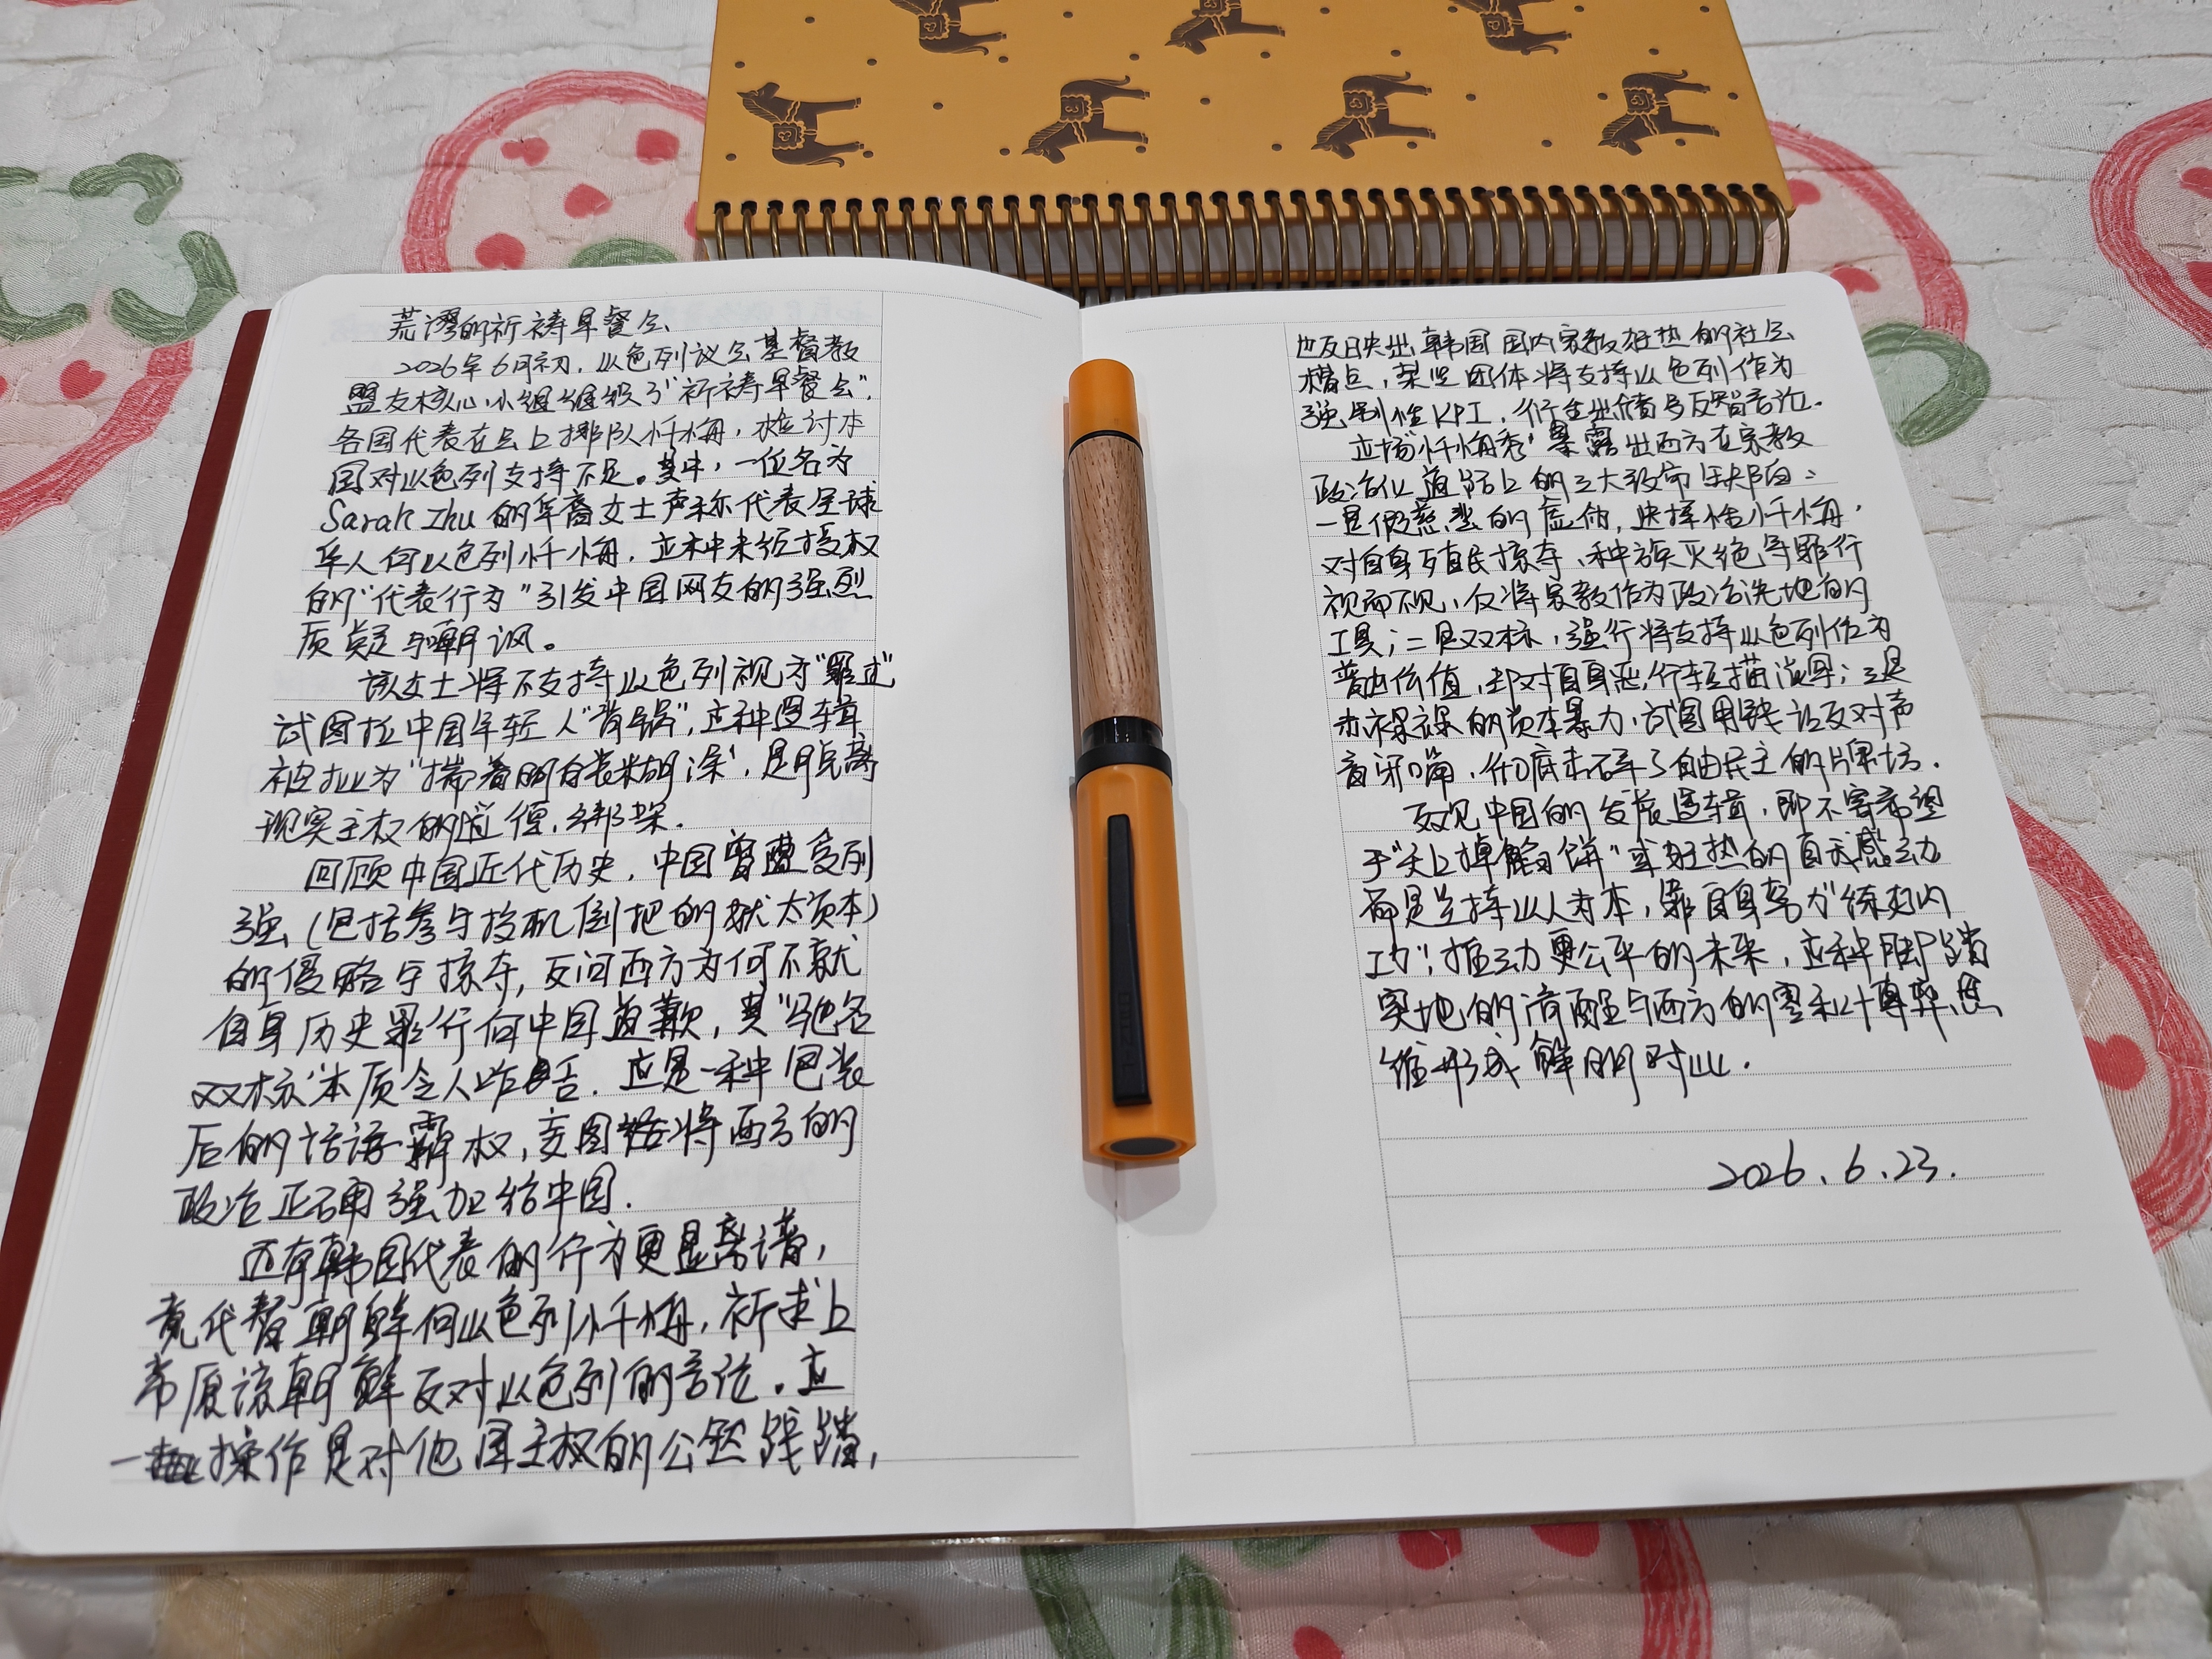 荒谬的祈祷早餐会
2026年6月初，以色列议会基督教
盟友核心小组组织了“祈祷早餐会”，
各国代表在会上排队忏悔，检讨本
国对以色列支持不足。其中，一位名为
Sarah Zhu 的华裔女士声称代表全球
华人向以色列忏悔，这种未经授权
的“代表行为”引发中国网友的强烈
质疑与嘲讽。
该女士将不支持以色列视为“罪过”
试图拉中国年轻人“背锅”，这种逻辑
被批为“揣着明白装糊涂”，是脱离
现实主权的道德绑架.
回顾中国近代历史，中国曾遭受列
强（包括参与投机倒把的犹太资本）
的侵略与掠夺，反问西方为何不就
自身历史罪行向中国道歉，其“驰名
双标”本质令人咋舌. 这是一种包装
后的话语霸权，妄图将西方的
政治正确强加给中国.
还有韩国代表的行为更显离谱，
竟代替朝鲜向以色列忏悔，祈求上
帝原谅朝鲜反对以色列的言论. 这
一操作是对他国主权的公然践踏，
也反映出韩国国内宗教狂热的社会
槽点，某些团体将支持以色列作为
强制性KPI，衍生出诸多反智言论.
这场“忏悔秀”暴露出西方在宗教
政治化道路上的三大致命缺陷：
一是假慈悲的虚伪，选择性忏悔，
对自身殖民掠夺、种族灭绝等罪行
视而不见，仅将宗教作为政治洗地的
工具；二是双标，强行将支持以色列作为
普世价值，却对自身恶行轻描淡写；三是
赤裸裸的资本暴力，试图用钱让反对声
音闭嘴，彻底击碎了自由民主的牌坊.
反观中国的发展逻辑，即不寄希望
于“天上掉馅饼”或狂热的自我感动
而是坚持以人为本，靠自身努力“练好内
功”，推动更公平的未来，这种脚踏
实地的清醒与西方的零和博弈思
维形成鲜明对比.
2026.6.23.